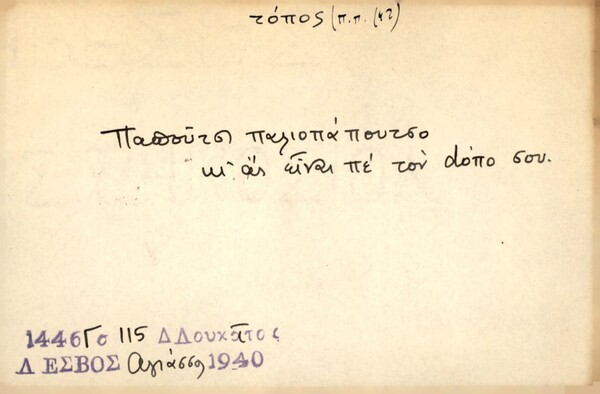 τόπος (π.π. (42)
Παπούτσι παλιοπάπουτσο
κι ἄς εἶναι πέ τὸν dόπο σου.
1446 Γσ 115 Δ Δουκᾶτος
ΛΕΣΒΟΣ Ἁγιάσσο 1940